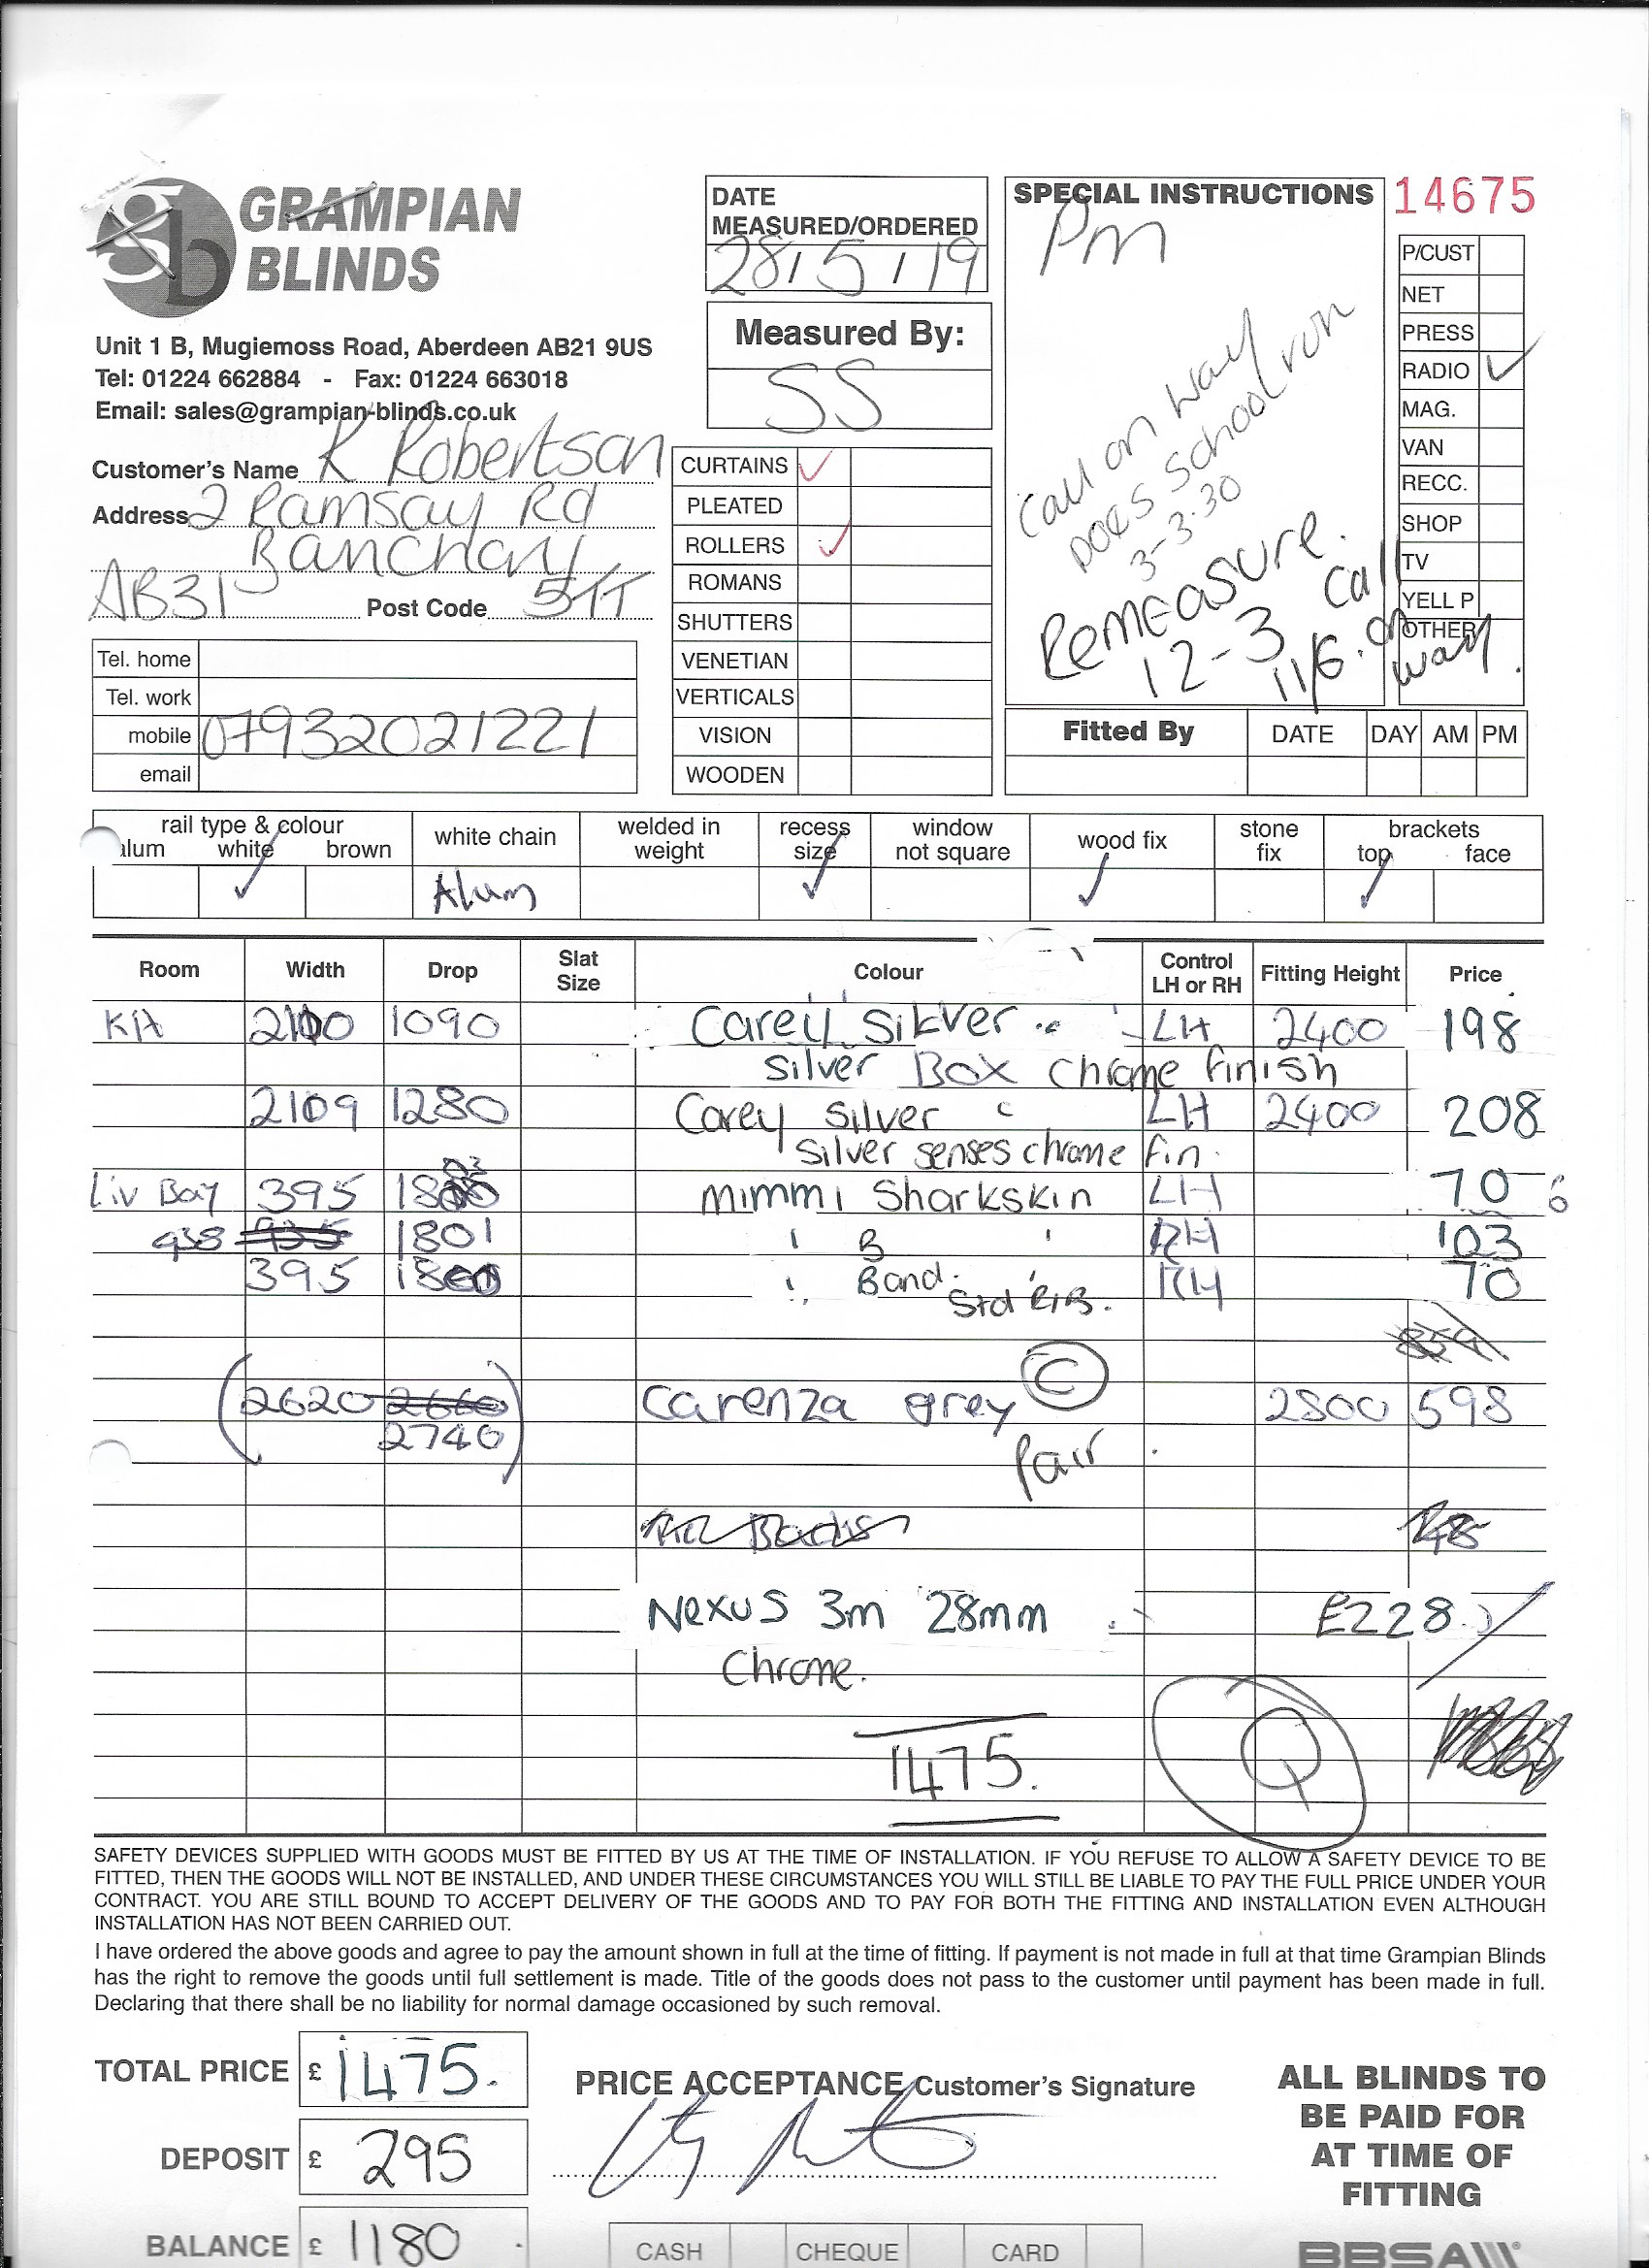 gb GRAMPIAN BLINDS
Unit 1 B, Mugiemoss Road, Aberdeen AB21 9US
Tel: 01224 662884 - Fax: 01224 663018
Email: sales@grampian-blinds.co.uk
Customer's Name K Robertson
Address 2 Ramsay Rd
Banchory
AB31 Post Code 5TT
Tel. home
Tel. work
mobile 07932021221
email
DATE MEASURED/ORDERED
28/5/19
Measured By:
SS
CURTAINS ✓
PLEATED
ROLLERS ✓
ROMANS
SHUTTERS
VENETIAN
VERTICALS
VISION
WOODEN
SPECIAL INSTRUCTIONS
Pm
Call on way
Does School run
3-3.30
Remeasure.
12-3 Call
11/6. on way.
14675
P/CUST
NET
PRESS
RADIO ✓
MAG.
VAN
RECC.
SHOP
TV
YELL P
OTHER
Fitted By DATE DAY AM PM
rail type & colour white chain welded in weight recess size window not square wood fix stone fix brackets
alum white brown top face
✓ Alum ✓ ✓ ✓
Room Width Drop Slat Size Colour Control LH or RH Fitting Height Price
Kit 2100 1090 Carey Silver LH 2400 198
Silver Box chrome finish
2109 1280 Carey Silver LH 2400 208
Silver senses chrome fin.
Liv Bay 395 Mimmi Sharkskin LH 70
938 1801 B RH 103
395 Band. RH 70
Std
C
2620 2660 Carenza grey 2800 598
2740 Pair
Nexus 3m 28mm £228
Chrome.
1475.
Q
SAFETY DEVICES SUPPLIED WITH GOODS MUST BE FITTED BY US AT THE TIME OF INSTALLATION. IF YOU REFUSE TO ALLOW A SAFETY DEVICE TO BE
FITTED, THEN THE GOODS WILL NOT BE INSTALLED, AND UNDER THESE CIRCUMSTANCES YOU WILL STILL BE LIABLE TO PAY THE FULL PRICE UNDER YOUR
CONTRACT. YOU ARE STILL BOUND TO ACCEPT DELIVERY OF THE GOODS AND TO PAY FOR BOTH THE FITTING AND INSTALLATION EVEN ALTHOUGH
INSTALLATION HAS NOT BEEN CARRIED OUT.
I have ordered the above goods and agree to pay the amount shown in full at the time of fitting. If payment is not made in full at that time Grampian Blinds
has the right to remove the goods until full settlement is made. Title of the goods does not pass to the customer until payment has been made in full.
Declaring that there shall be no liability for normal damage occasioned by such removal.
TOTAL PRICE £ 1475.
DEPOSIT £ 295
BALANCE £ 1180
PRICE ACCEPTANCE Customer's Signature
CASH CHEQUE CARD
ALL BLINDS TO
BE PAID FOR
AT TIME OF
FITTING
BBSA